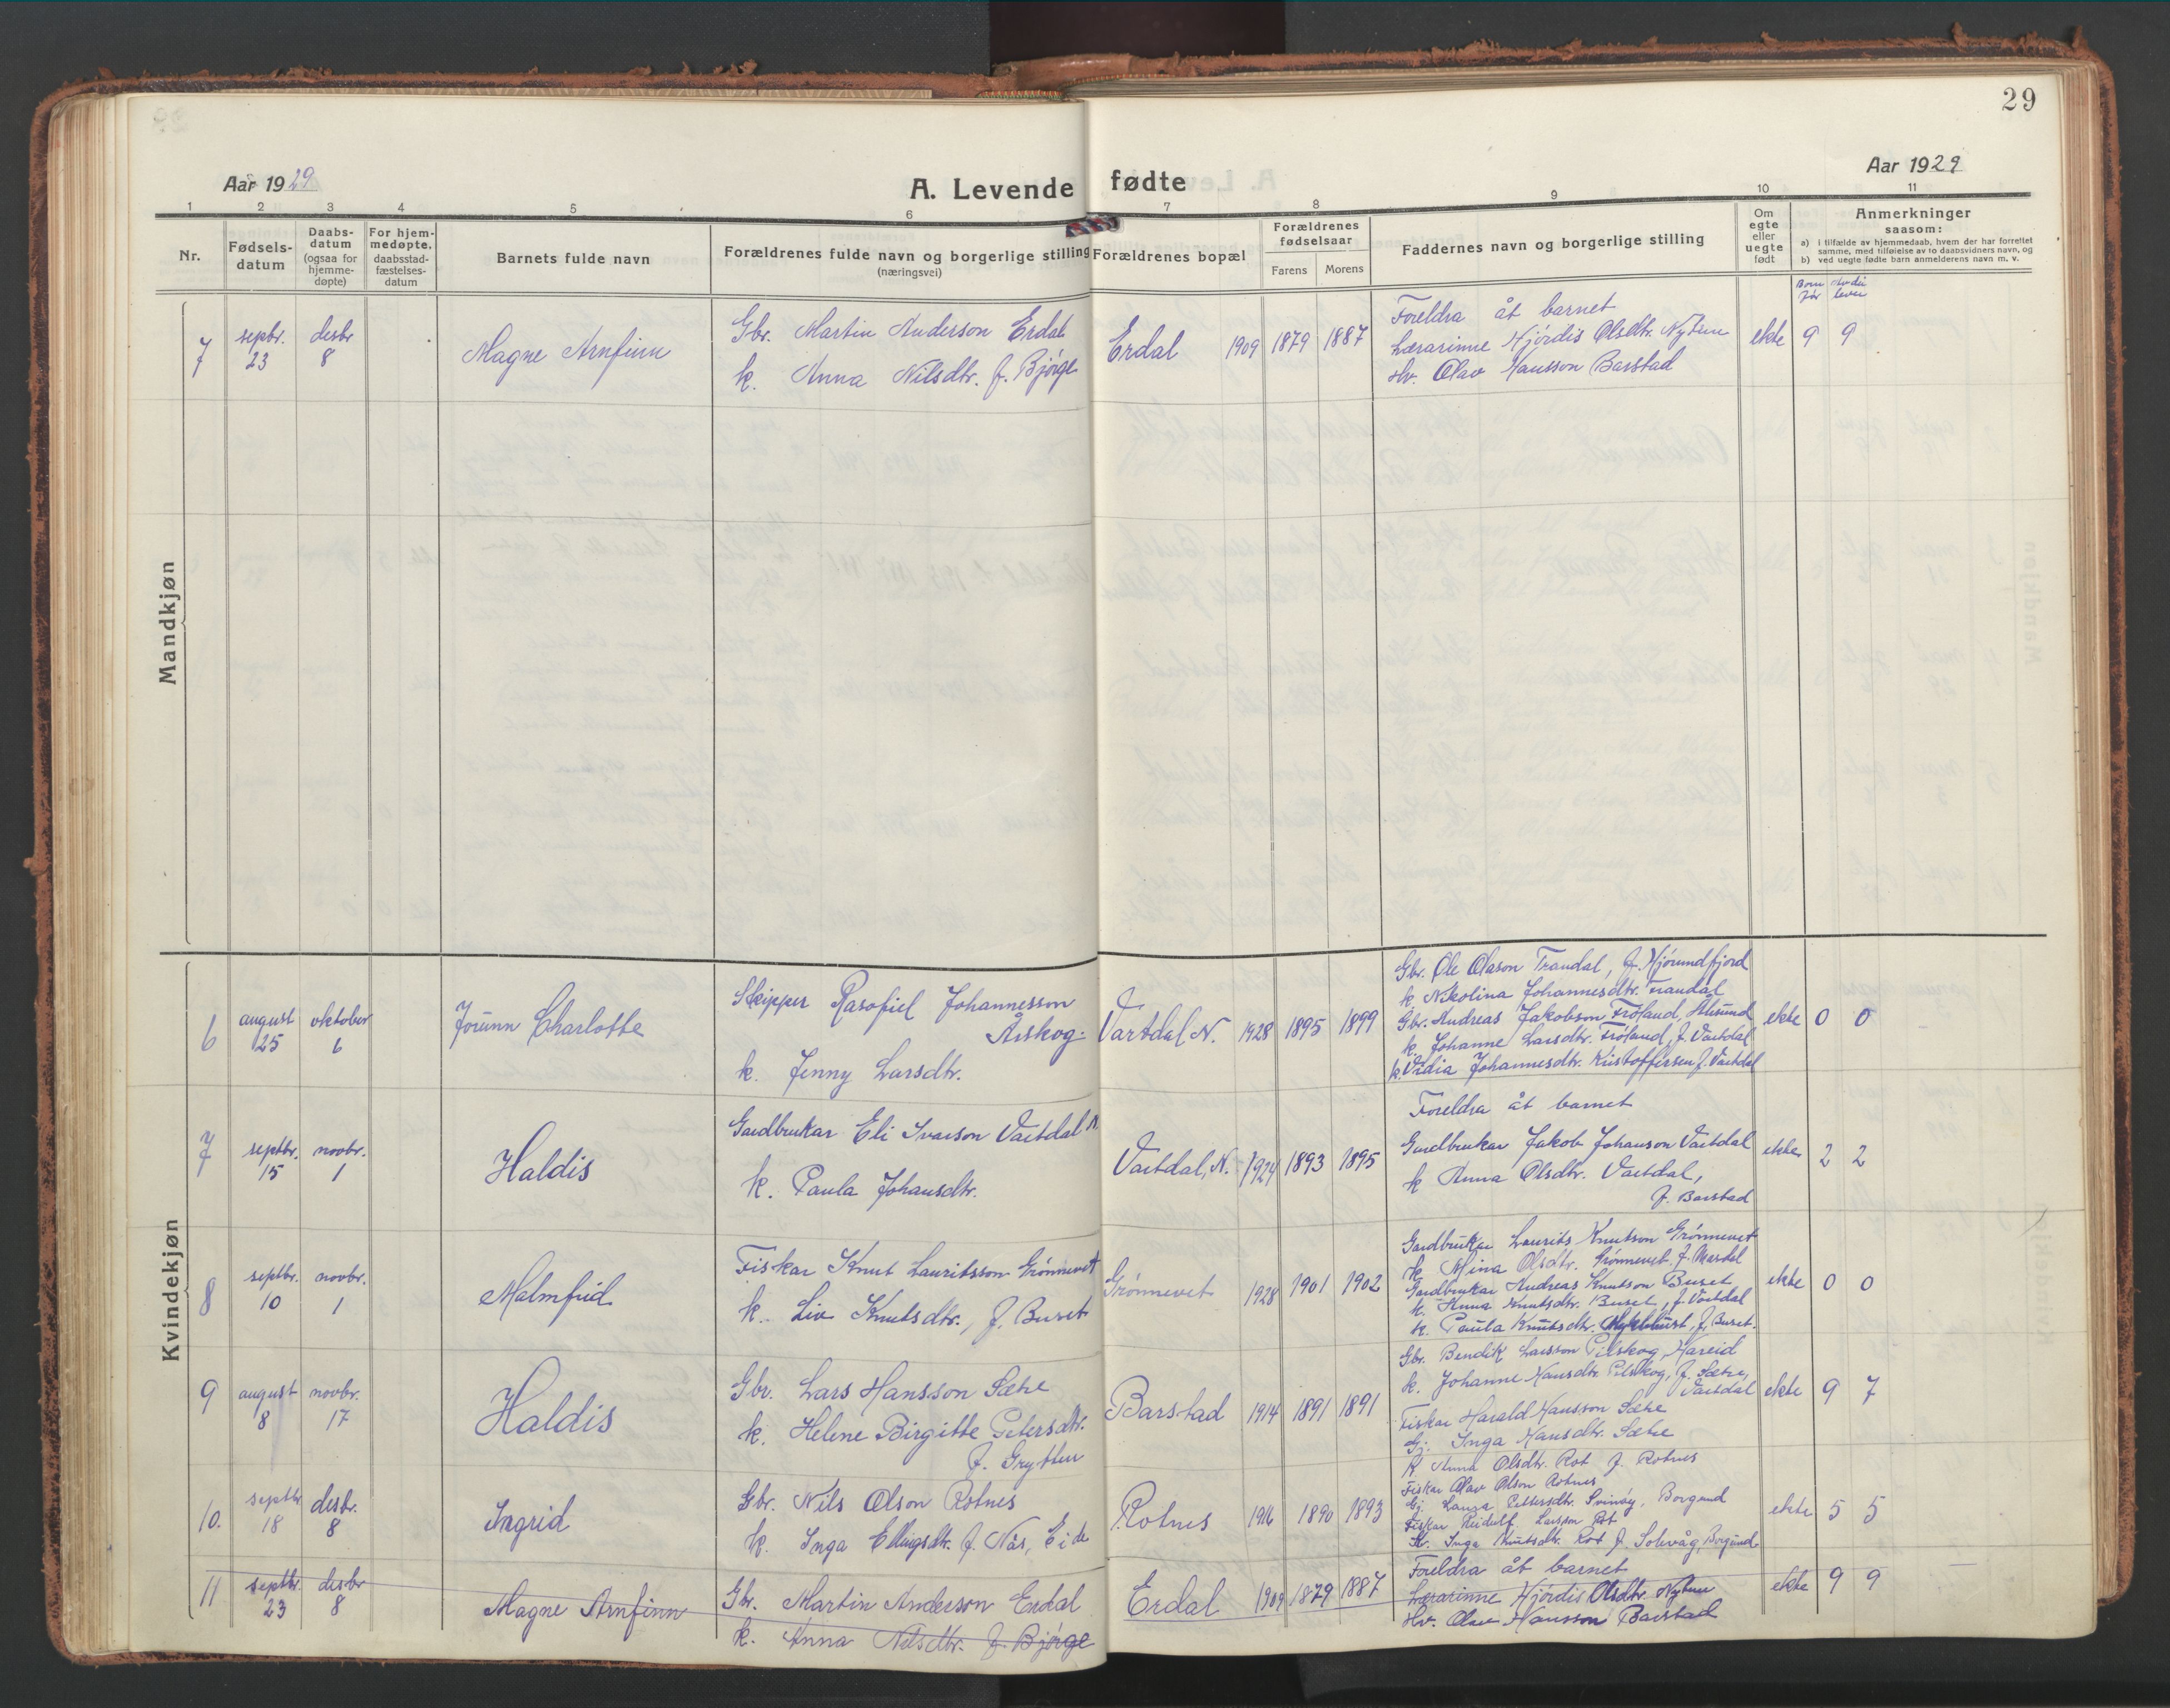 29
Aar 1929
A. Levende fødte
Aar 1929
1 2 3 4 5 6 7 8 9 10 11
Nr.
Fødsels-
datum
Daabs-
datum
(ogsaa for
hjemme-
døpte)
For hjem-
medøpte,
daabsstad-
fæstelses-
datum
Barnets fulde navn
Forældrenes fulde navn og borgerlige stilling
(næringsvei)
Forældrenes bopæl
Forældrenes
fødselsaar
Farens Morens
Faddernes navn og borgerlige stilling
Om
egte
eller
uegte
født
Anmerkninger
saasom:
a) i tilfælde av hjemmedaab, hvem der har forrettet
samme, med tilføielse av to daabsvidners navn, og
b) ved uegte fødte barn anmelderens navn m. v.
Born
før lever
Mandkjøn
7
septbr.
23
desbr
8
Magne Arnfinn
Gbr. Martin Anderson Erdal
k. Anna Nilsdtr. f. Bjørge
Erdal 1909 1879 1887
Foreldra åt barnet
Lærarinne Hjørdis Olsdtr. Nytun
Hv. Olav Hansson Barstad
ekte 9 9
Kvindekjøn
6
august
25
oktober
6
Jorunn Charlotte
Skipper Rasofiel Johannesson
Årskog
k. Jenny Larsdtr.
Vartdal N. 1928 1895 1899
Gbr. Ole Olason Trandal, f. Hjørundfjord
k. Nikolina Johannesdtr. Trandal
Gbr. Andreas Jakobson Frøland, Ålesund
k. Johanne Larsdtr. Frøland, f. Vartdal
k. Vidia Johannesdtr. Kristoffersen f. Vartdal
ekte 0 0
7
septbr.
15
novbr.
1
Haldis
Gardbrukar Eli Ivarson Vartdal N.
k. Paula Johansdtr.
Vartdal, N. 1924 1893 1895
Foreldra åt barnet
Gardbrukar Jakob Johanson Vartdal
k Anna Olsdtr. Vartdal,
f. Barstad
ekte 2 2
8
septbr.
10
novbr.
1
Malmfrid
Fiskar Knut Lauritsson Grønnevet
k. Liv Knutsdtr., f. Buset
Grønnevet 1928 1901 1902
Gardbrukar Laurits Knutson Grønnevet
k. Mina Olsdtr. Grønnevet f.
Gardbrukar Andreas Knutson Buset
k. Anna Knutsdtr. Buset, f. Vartdal
k. Paula Knutsdtr. Myklebust, f. Buset.
ekte 0 0
9
august
8
novbr.
17
Haldis
Gbr. Lars Hansson Sætre
k. Helene Birgitte Petersdtr.
f. Grytten
Barstad 1914 1891 1891
Gbr. Bendik Larsson Pilskog, Hareid
k. Johanne Hansdtr. Pilskog, f. Sætre,
Vartdal
Fiskar Harald Hansson Sætre
Gj. Inga Hansdtr. Sætre
ekte 9 7
10.
septbr
18
desbr.
8
Ingrid
Gbr. Nils Olson Rotnes
k. Inga Ellingsdtr. f. Nås, Eide
Rotnes 1916 1890 1893
k. Anna Olsdtr. Rot f. Rotnes
Fiskar Olav Olson Rotnes
Gj. Laura Pettersdtr. Svinøy, Borgund
Fiskar Reidulf Larsson Rot
k. Inga Knutsdtr. Rot f. Solevåg, Borgund
ekte 5 5
11
septbr.
23
desbr
8
Magne Arnfinn
Gbr. Martin Anderson Erdal
k. Anna Nilsdtr. f. Bjørge
Erdal 1909 1879 1887
Foreldra åt barnet
Lærarinne Hjørdis Olsdtr. Nytun
Hv. Olav Hansson Barstad
ekte 9 9